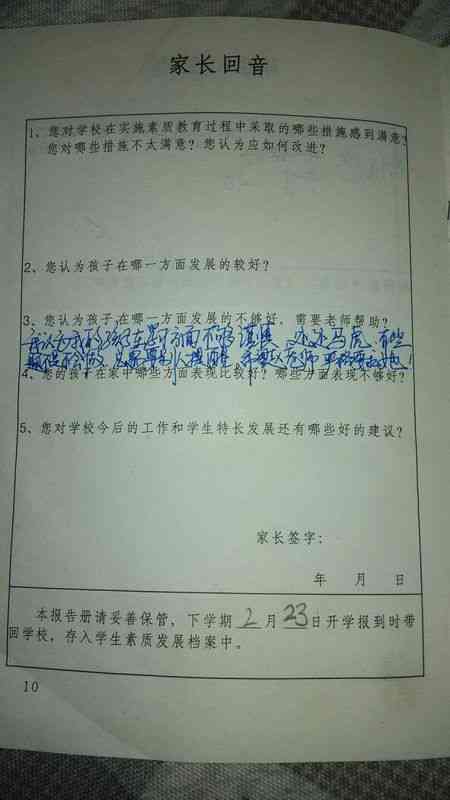 家长回音
1、您对学校在实施素质教育过程中采取的哪些措施感到满意？
您对哪些措施不太满意？您认为应如何改进？
2、您认为孩子在哪一方面发展的较好？
3、您认为孩子在哪一方面发展的不够好，需要老师帮助？
我认为我的孩子在学习方面不够谨慎，还还马虎，有些
题还不会做，
4、您的孩子在家中哪些方面表现比较好？哪些方面表现不够好？
5、您对学校今后的工作和学生特长发展还有哪些好的建议？
家长签字：
年 月 日
本报告册请妥善保管，下学期2月23日开学报到时带
回学校，存入学生素质发展档案中。
10